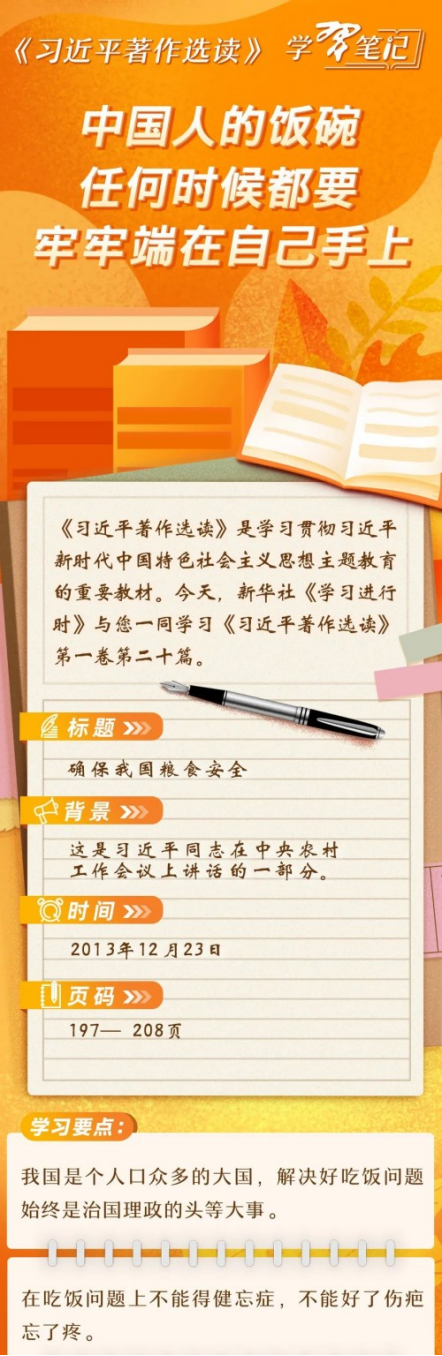 《习近平著作选读》 学习笔记
中国人的饭碗
任何时候都要
牢牢端在自己手上
《习近平著作选读》是学习贯彻习近平
新时代中国特色社会主义思想主题教育
的重要教材。今天，新华社《学习进行
时》与您一同学习《习近平著作选读》
第一卷第二十篇。
标题
确保我国粮食安全
背景
这是习近平同志在中央农村
工作会议上讲话的一部分。
时间
2013年12月23日
页码
197— 208页
学习要点：
我国是个人口众多的大国，解决好吃饭问题
始终是治国理政的头等大事。
在吃饭问题上不能得健忘症，不能好了伤疤
忘了疼。